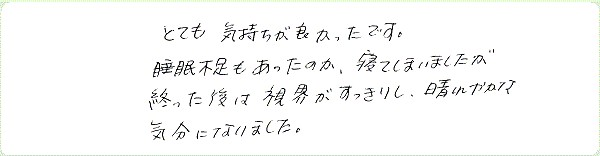 とても 気持ちが良かったです。
睡眠不足もあったのか、寝てしまいましたが
終った後は 視界がすっきりし、晴れやかな
気分になりました。